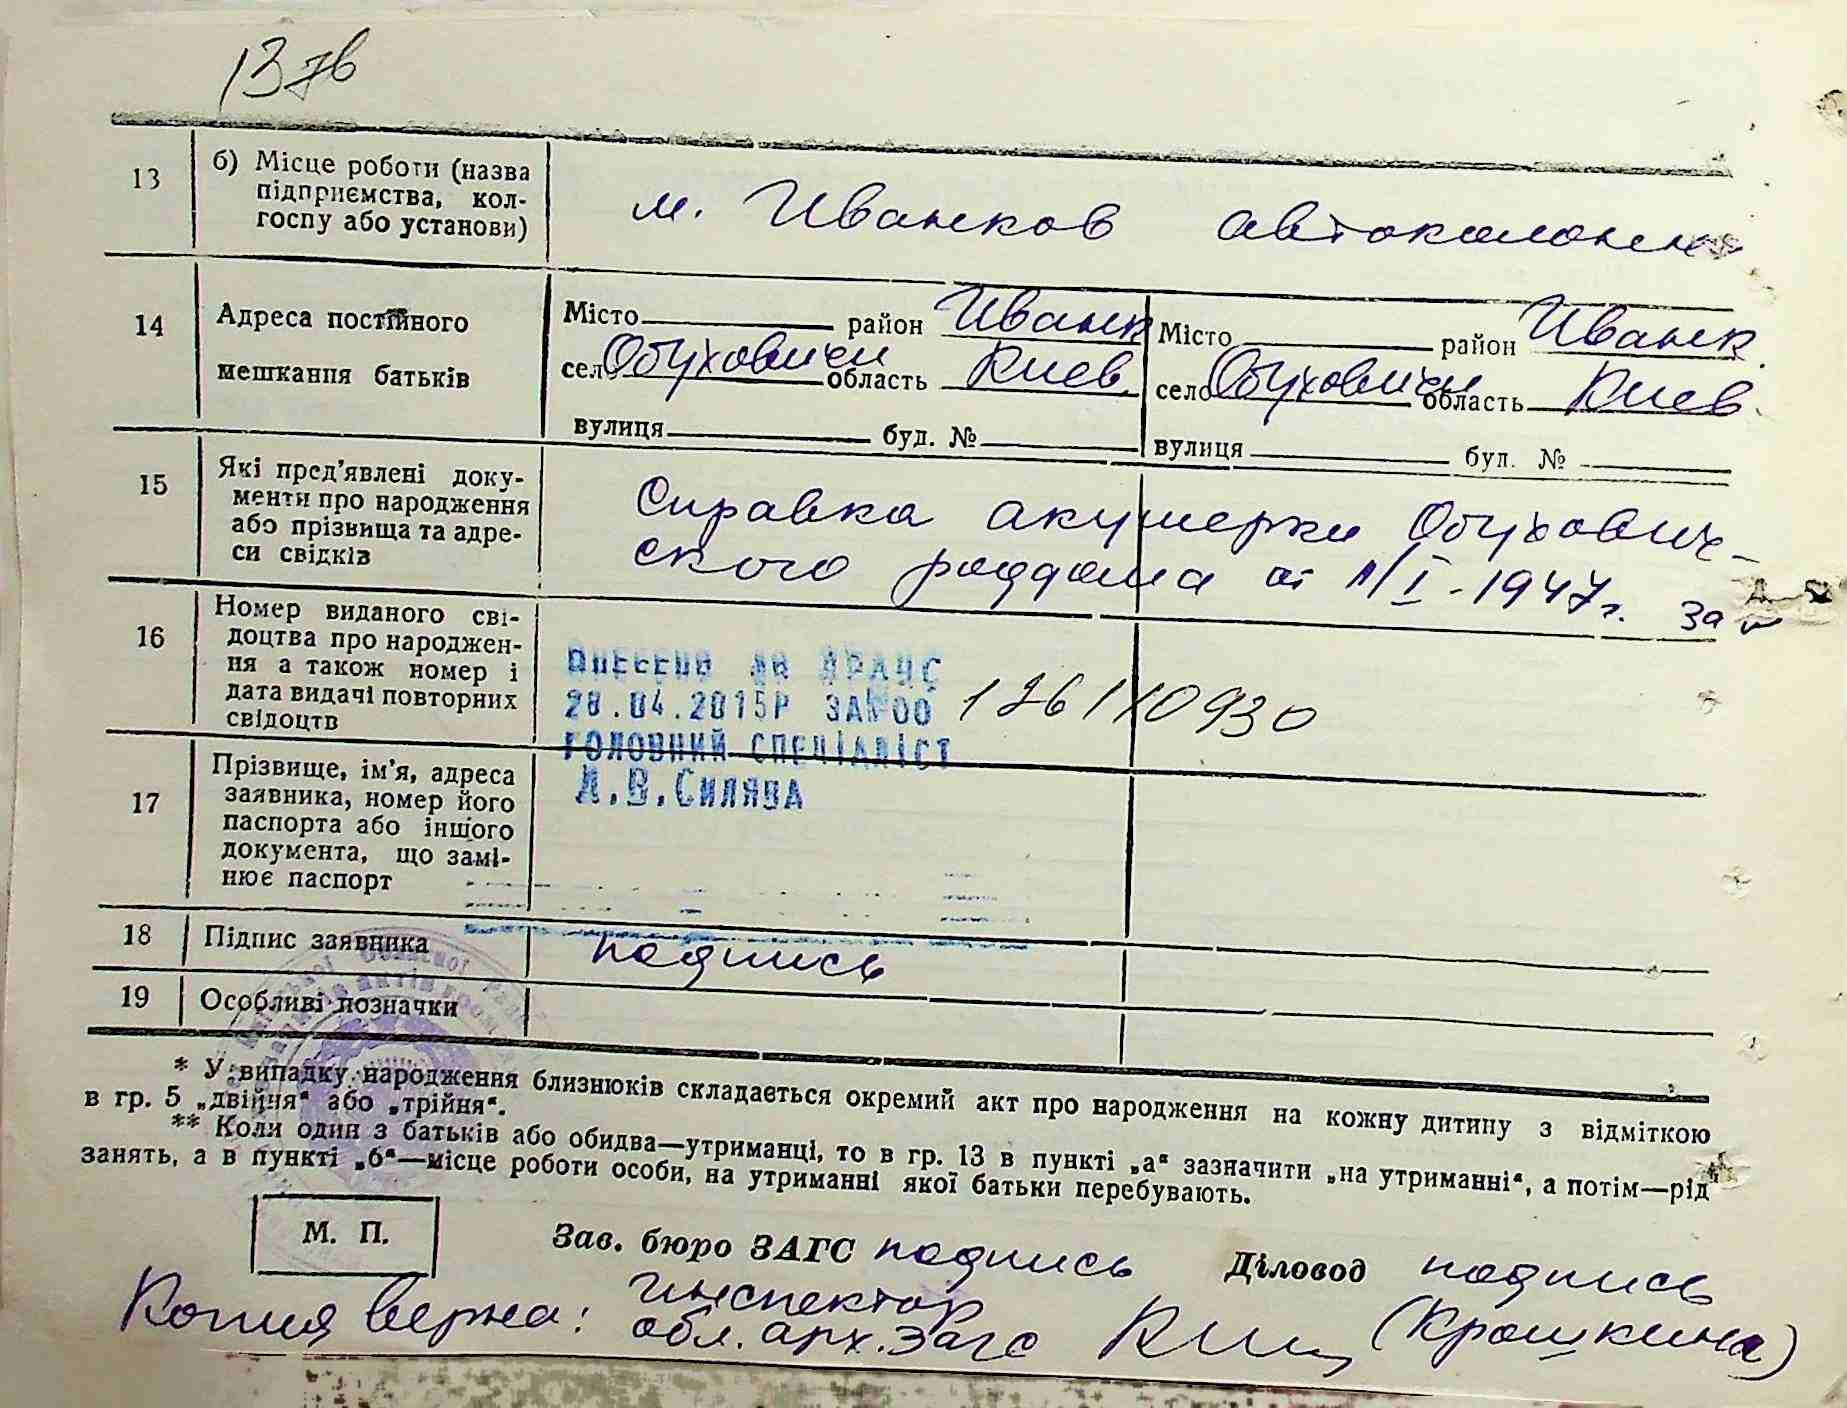 13 зв
13
б) Місце роботи (назва
підприємства, кол-
госпу або установи)
м. Иванков автоколонна
14
Адреса постійного
мешкання батьків
Місто район Иванк Місто район Иванк.
село Обуховичи область Киев село Обуховичи область Киев.
вулиця буд. № вулиця буд. №
15
Які пред'явлені доку-
менти про народження
або прізвища та адре-
си свідків
Справка акушерки Обухович-
ского роддома от 1/I-1947г. за №
16
Номер виданого сві-
доцтва про народжен-
ня а також номер і
дата видачі повторних
свідоцтв
ВНЕСЕНО ДО ДРАЦС
28.04.2015Р ЗА№00 126110930
ГОЛОВНИЙ СПЕЦІАЛІСТ
Л.В.СИЛЯВА
17
Прізвище, ім'я, адреса
заявника, номер його
паспорта або іншого
документа, що замі-
нює паспорт
18 Підпис заявника подпись
19 Особливі позначки
* У випадку народження близнюків складається окремий акт про народження на кожну дитину з відміткою
в гр. 5 „двійня“ або „трійня“.
** Коли один з батьків або обидва—утриманці, то в гр. 13 в пункті „а“ зазначити „на утриманні“, а потім—рід
занять, а в пункті „б“—місце роботи особи, на утриманні якої батьки перебувають.
М. П.
Зав. бюро ЗАГС подпись Діловод подпись
Копия верна: инспектор
обл. арх. Загс (Крошкина)